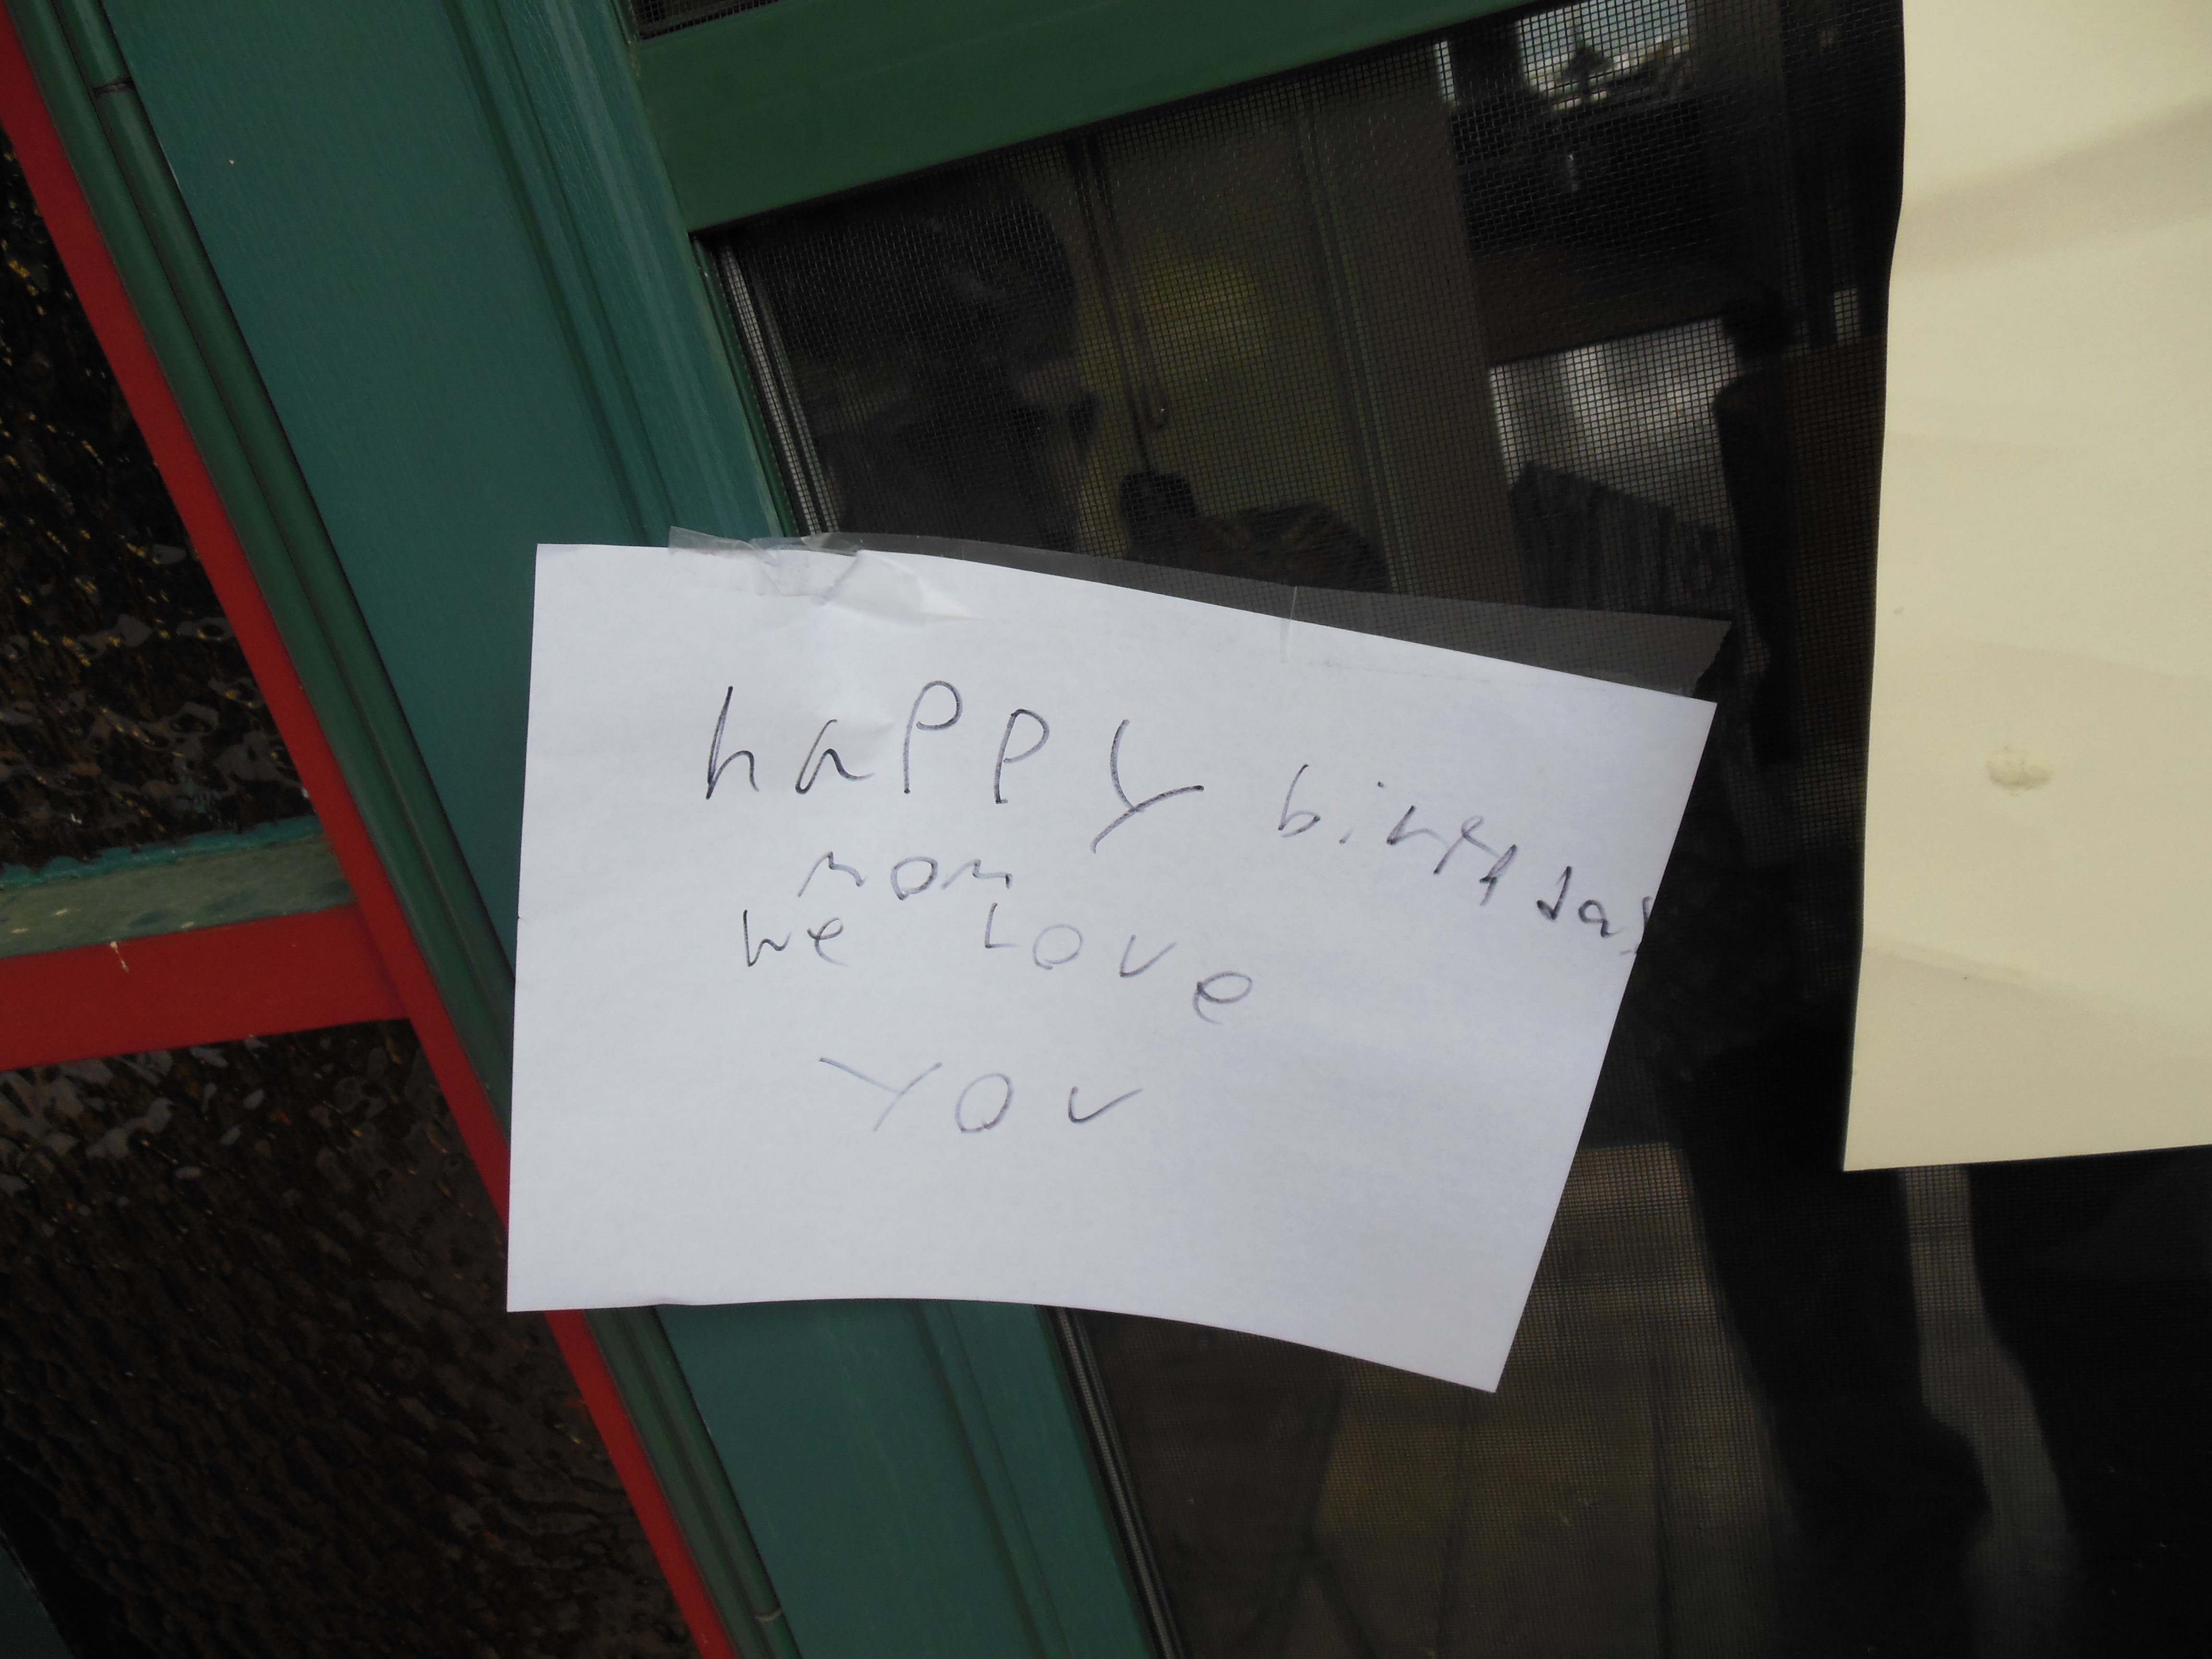 happy birthday
mom
we Love
you